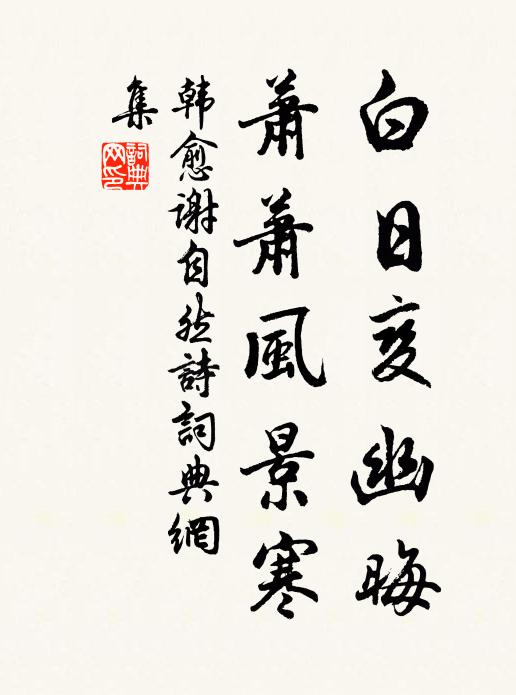 白日变幽晦
蕭蕭風景寒
韩愈謝自然詩詞典網
集
詞典
网印